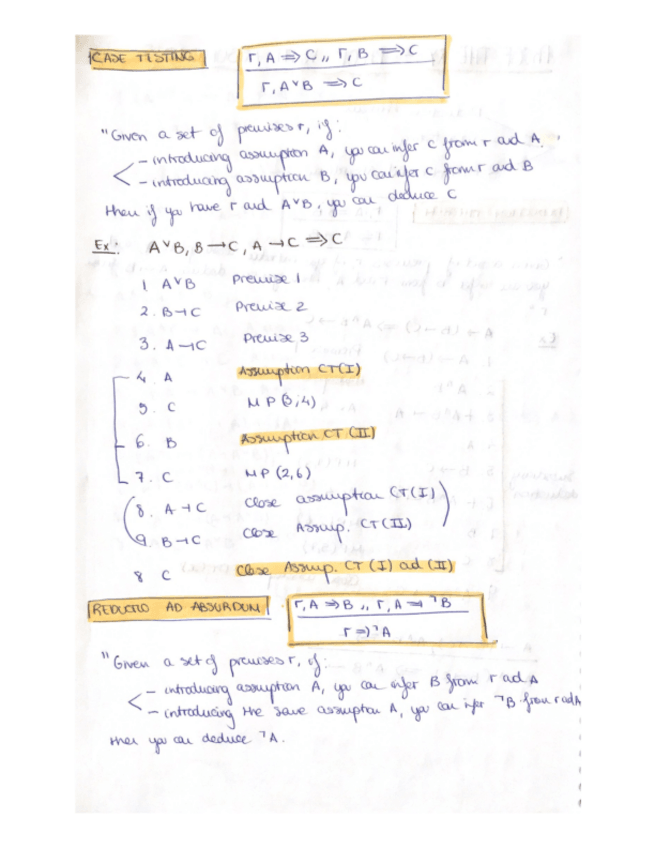 CASE TESTING
Γ, A ⇒ C ,, Γ, B ⇒ C
Γ, A˅B ⇒ C
"Given a set of premises Γ, if:
- introducing assumption A, you can infer C from Γ and A.
- introducing assumption B, you can infer C from Γ and B
then if you have Γ and A˅B, you can deduce C
Ex: A˅B, B→C, A→C ⇒ C
1 A˅B Premise 1
2. B→C Premise 2
3. A→C Premise 3
4. A Assumption CT(I)
5. C MP (3,4)
6. B Assumption CT (II)
7. C MP (2,6)
(8. A→C Close assumption CT(I))
(9. B→C Close Assump. CT(II))
8 C Close Assump. CT (I) ad (II)
REDUCTIO AD ABSURDUM
Γ, A ⇒ B ,, Γ, A ⇒ ¬B
Γ ⇒ ¬A
"Given a set of premises Γ, if:
- introducing assumption A, you can infer B from Γ ad A
- introducing the same assumption A, you can infer ¬B from Γ ad A
then you can deduce ¬A.